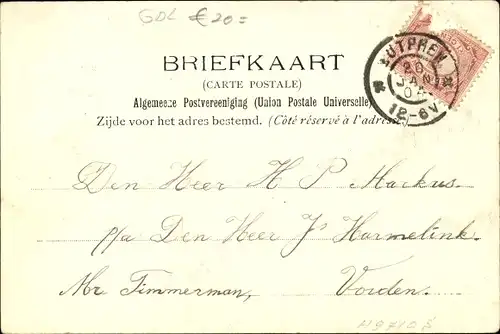 GDL € 20=
BRIEFKAART
(CARTE POSTALE)
Algemeene Postvereeniging (Union Postale Universelle)
Zijde voor het adres bestemd. (Côté réservé à l'adresse.)
ZUTPHEN
20 JAN 04
12-6V
Den Heer H P Mackus.
p/a Den Heer Js Harmelink.
Mr Timmerman, Vorden.